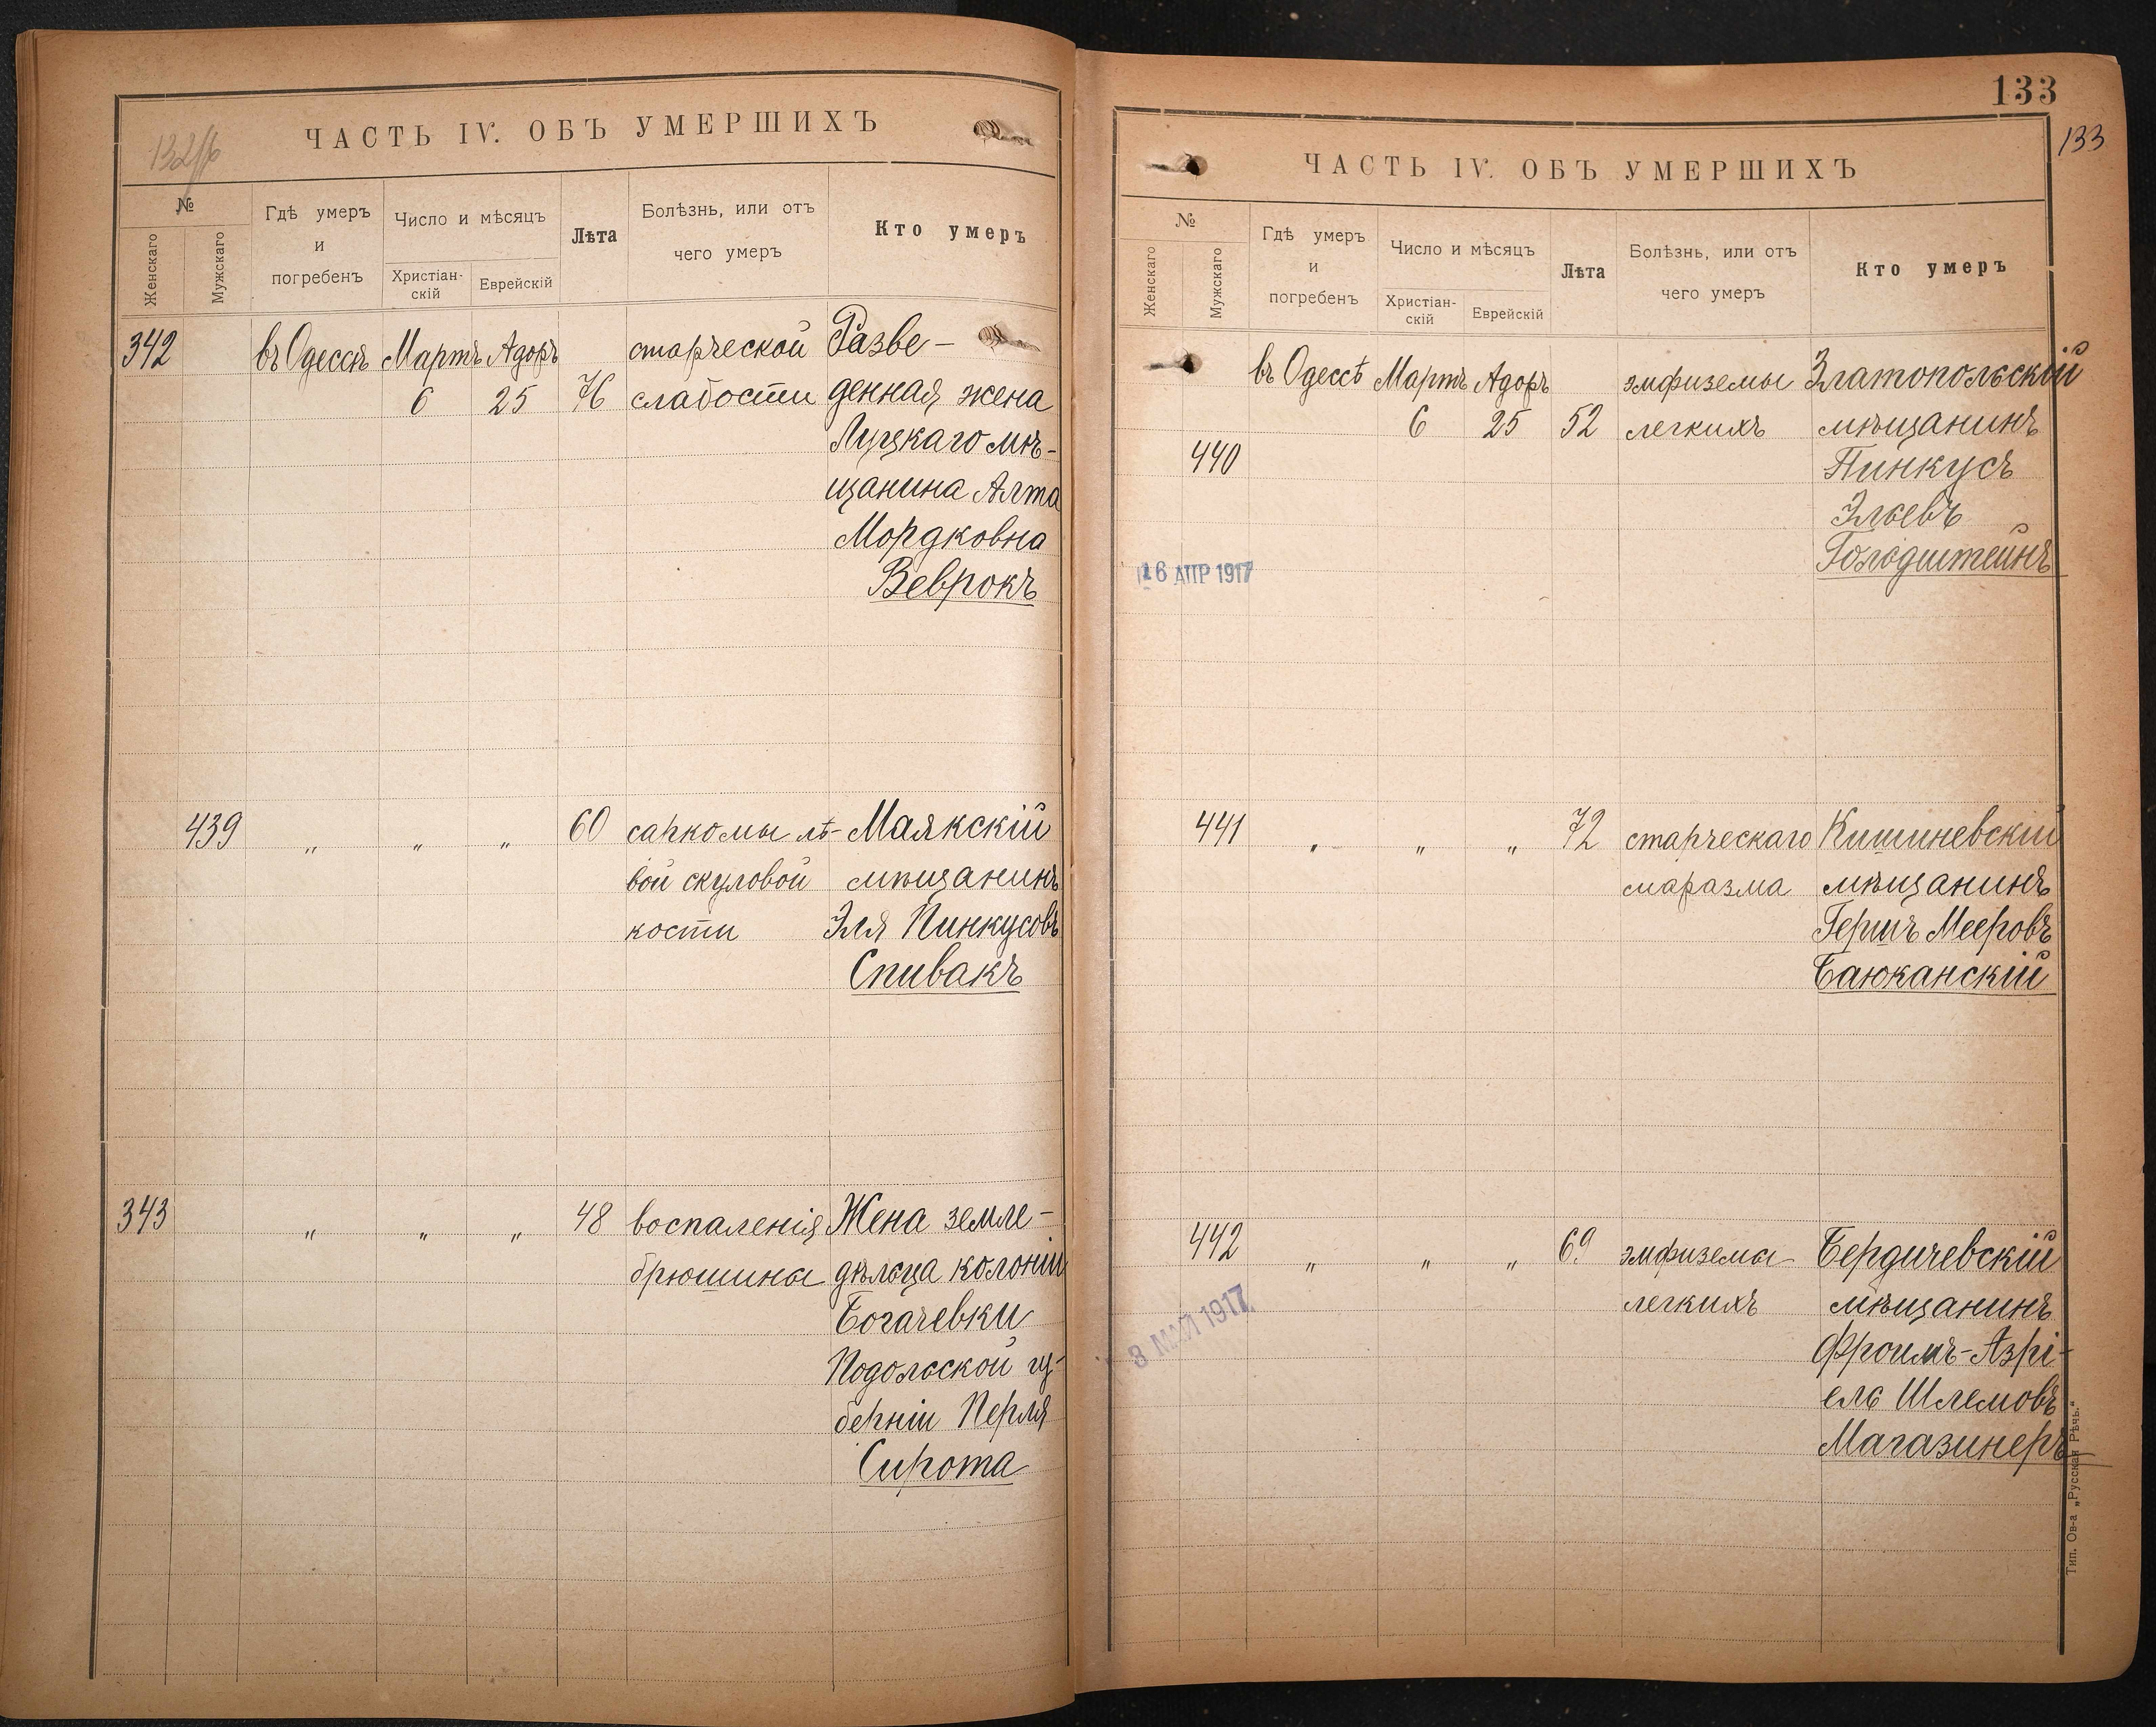 132об
ЧАСТЬ IV. ОБЪ УМЕРШИХЪ
№
Женскаго
Мужскаго
Гдѣ умеръ
и
погребенъ
Число и мѣсяцъ
Христіан-
скій
Еврейскій
Лѣта
Болѣзнь, или отъ
чего умеръ
Кто умеръ
342 въ Одессѣ Мартъ Адоръ старческой Разве-
6 25 76 слабости денная жена
Луцкаго мѣ-
щанина Алта
Мордковна
Веврокъ
439 „ „ „ 60 саркомы лѣ- Маякскій
вой скуловой мѣщанинъ
кости Эля Пинкусовъ
Спивакъ
343 „ „ „ 48 воспаленія Жена земле-
брюшины дѣльца колоніи
Богачевки
Подольской гу-
берніи Перля
Сирота
133
133
ЧАСТЬ IV. ОБЪ УМЕРШИХЪ
№
Женскаго
Мужскаго
Гдѣ умеръ
и
погребенъ
Число и мѣсяцъ
Христіан-
скій
Еврейскій
Лѣта
Болѣзнь, или отъ
чего умеръ
Кто умеръ
въ Одессѣ Мартъ Адоръ эмфиземы Златопольскій
6 25 52 легкихъ мѣщанинъ
440 Пинкусъ
Эльевъ
Гольдштейнъ
16 АПР 1917
441 „ „ „ 72 старческаго Кишиневскій
маразма мѣщанинъ
Гершъ Мееровъ
Баюканскій
442 „ „ „ 69 эмфиземы Бердичевскій
легкихъ мѣщанинъ
8 МАЙ 1917
Фроимъ-Азрі-
ель Шлемовъ
Магазинеръ
Тип. Ов-а „Русская Рѣчь.“